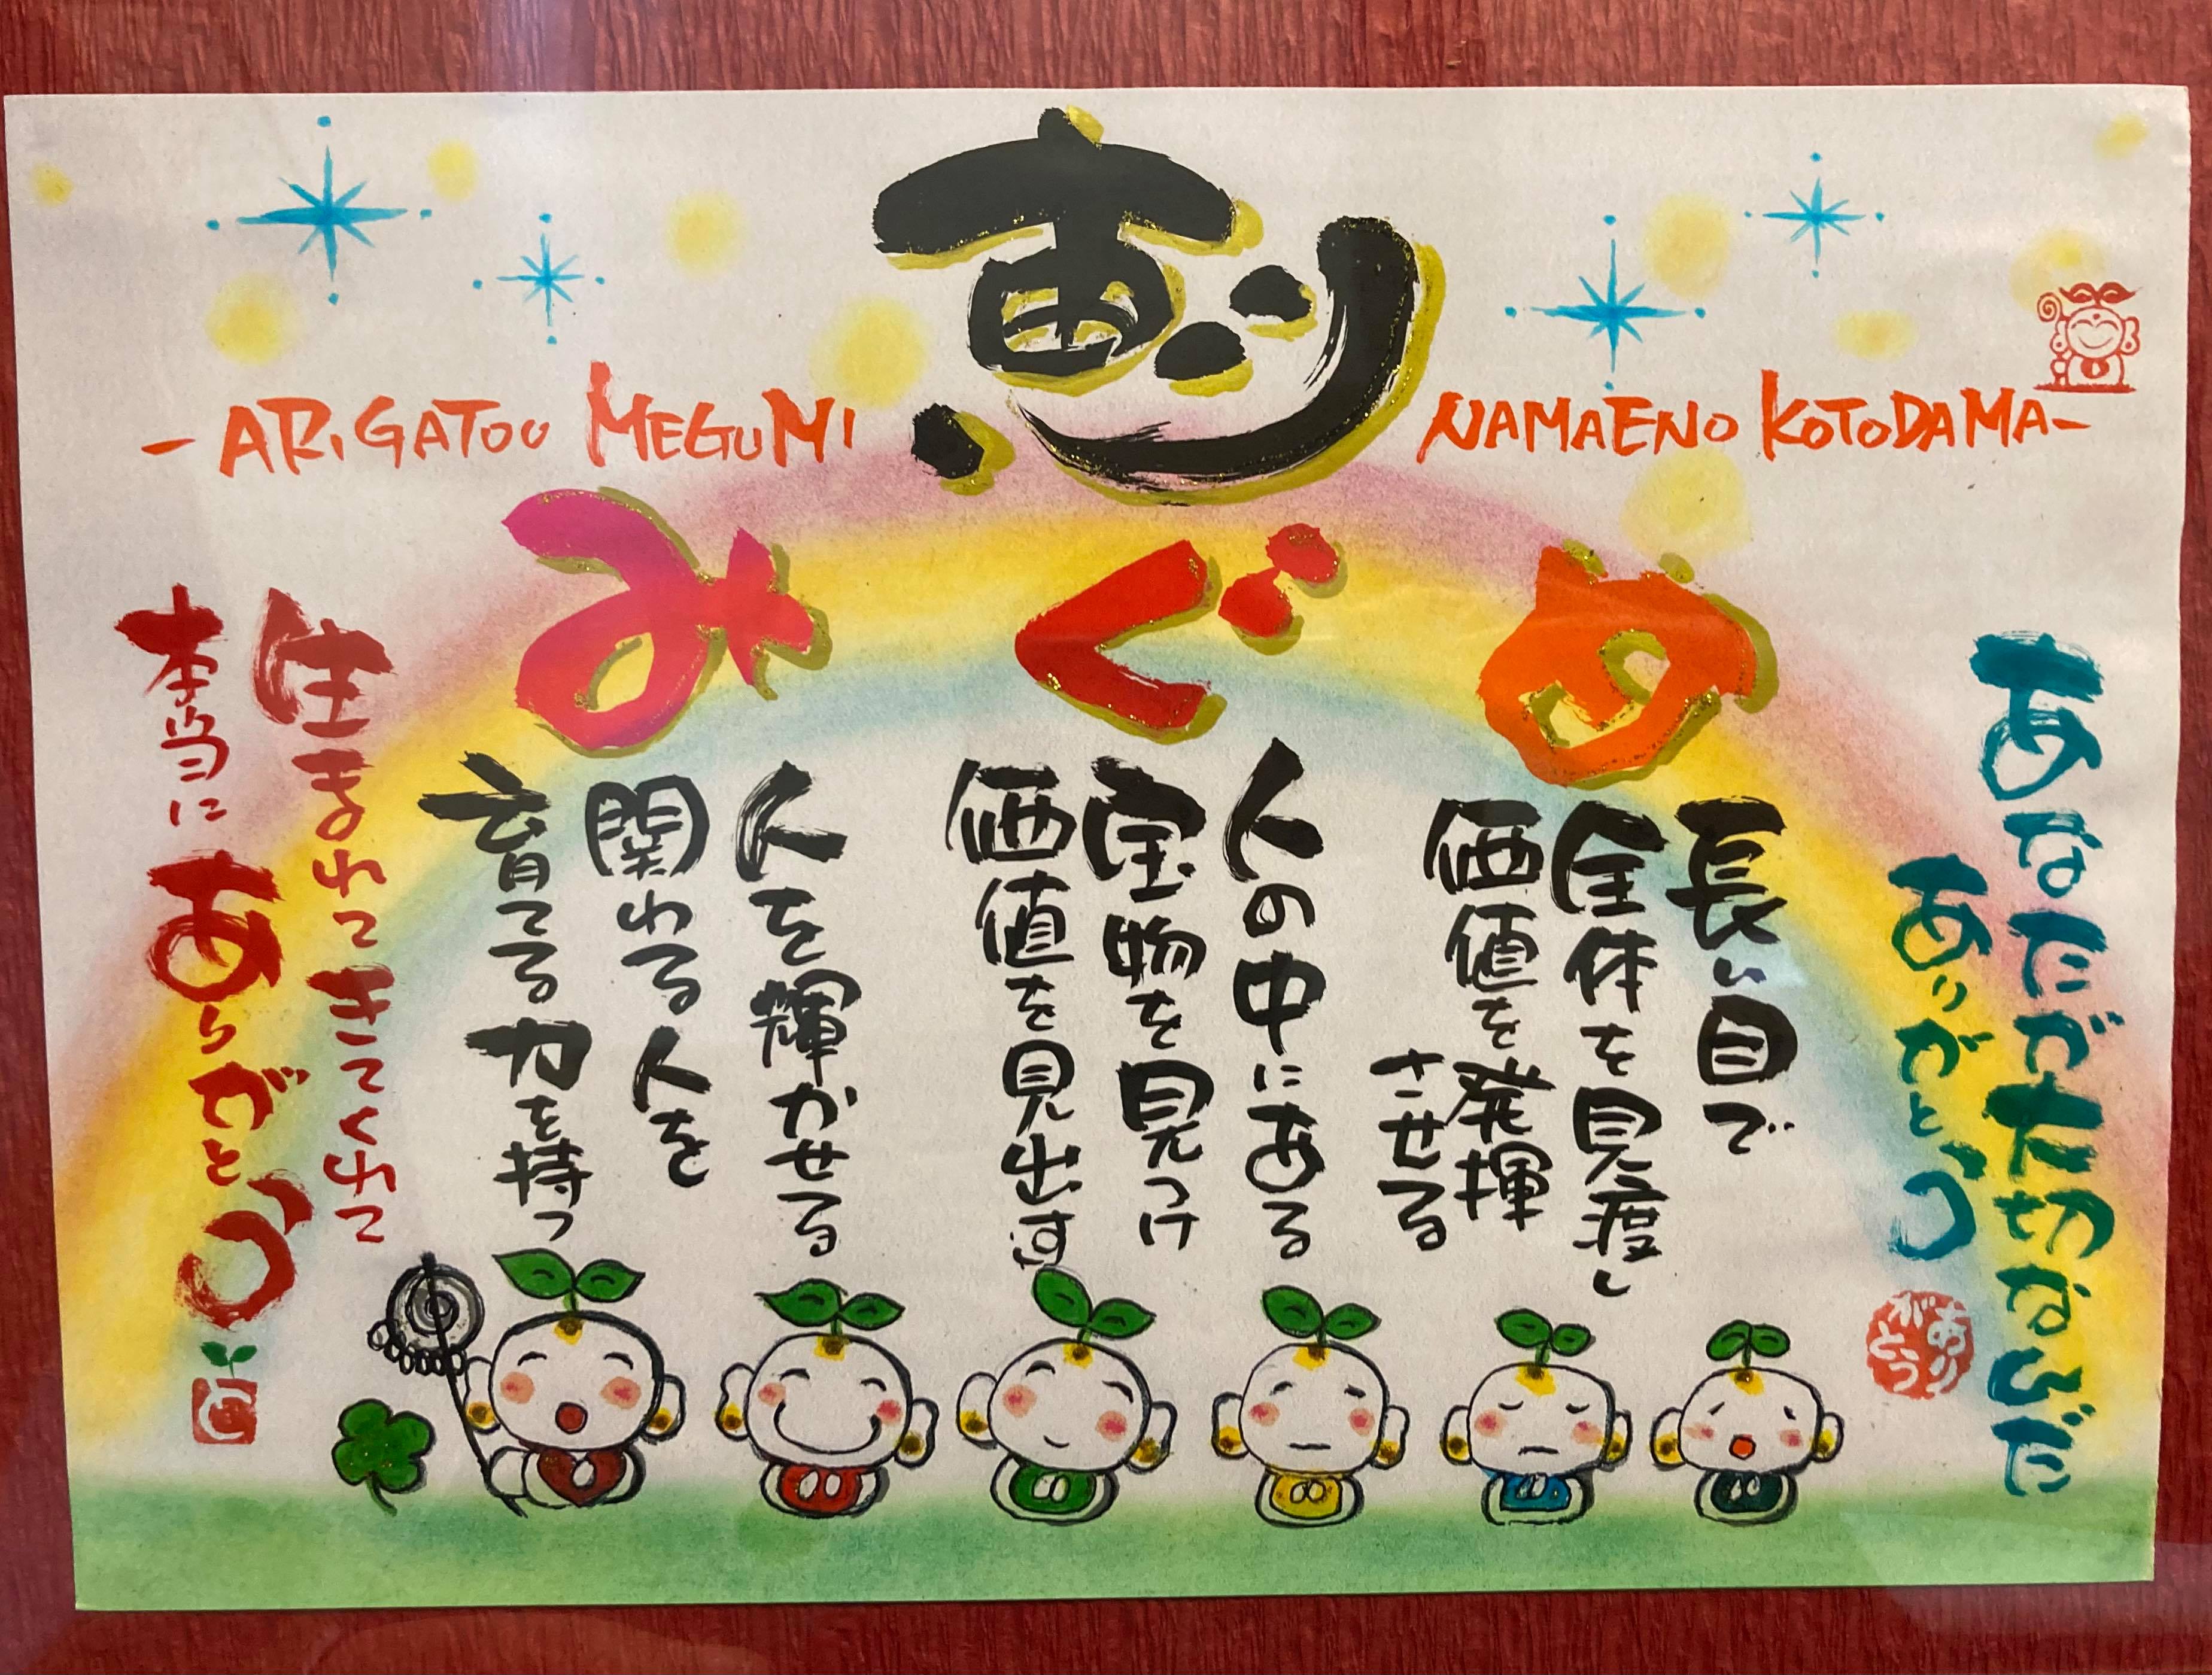 恵
-ARIGATOU MEGUMI
NAMAENO KOTODAMA-
めぐみ
あなたが大切なんだ
ありがとう
長い目で
全体を見渡し
価値を発揮
させる
人の中にある
宝物を見つけ
価値を見出す
人を輝かせる
関わる人を
育てる力を持つ
生まれてきてくれて
本当にありがとう
ありがとう